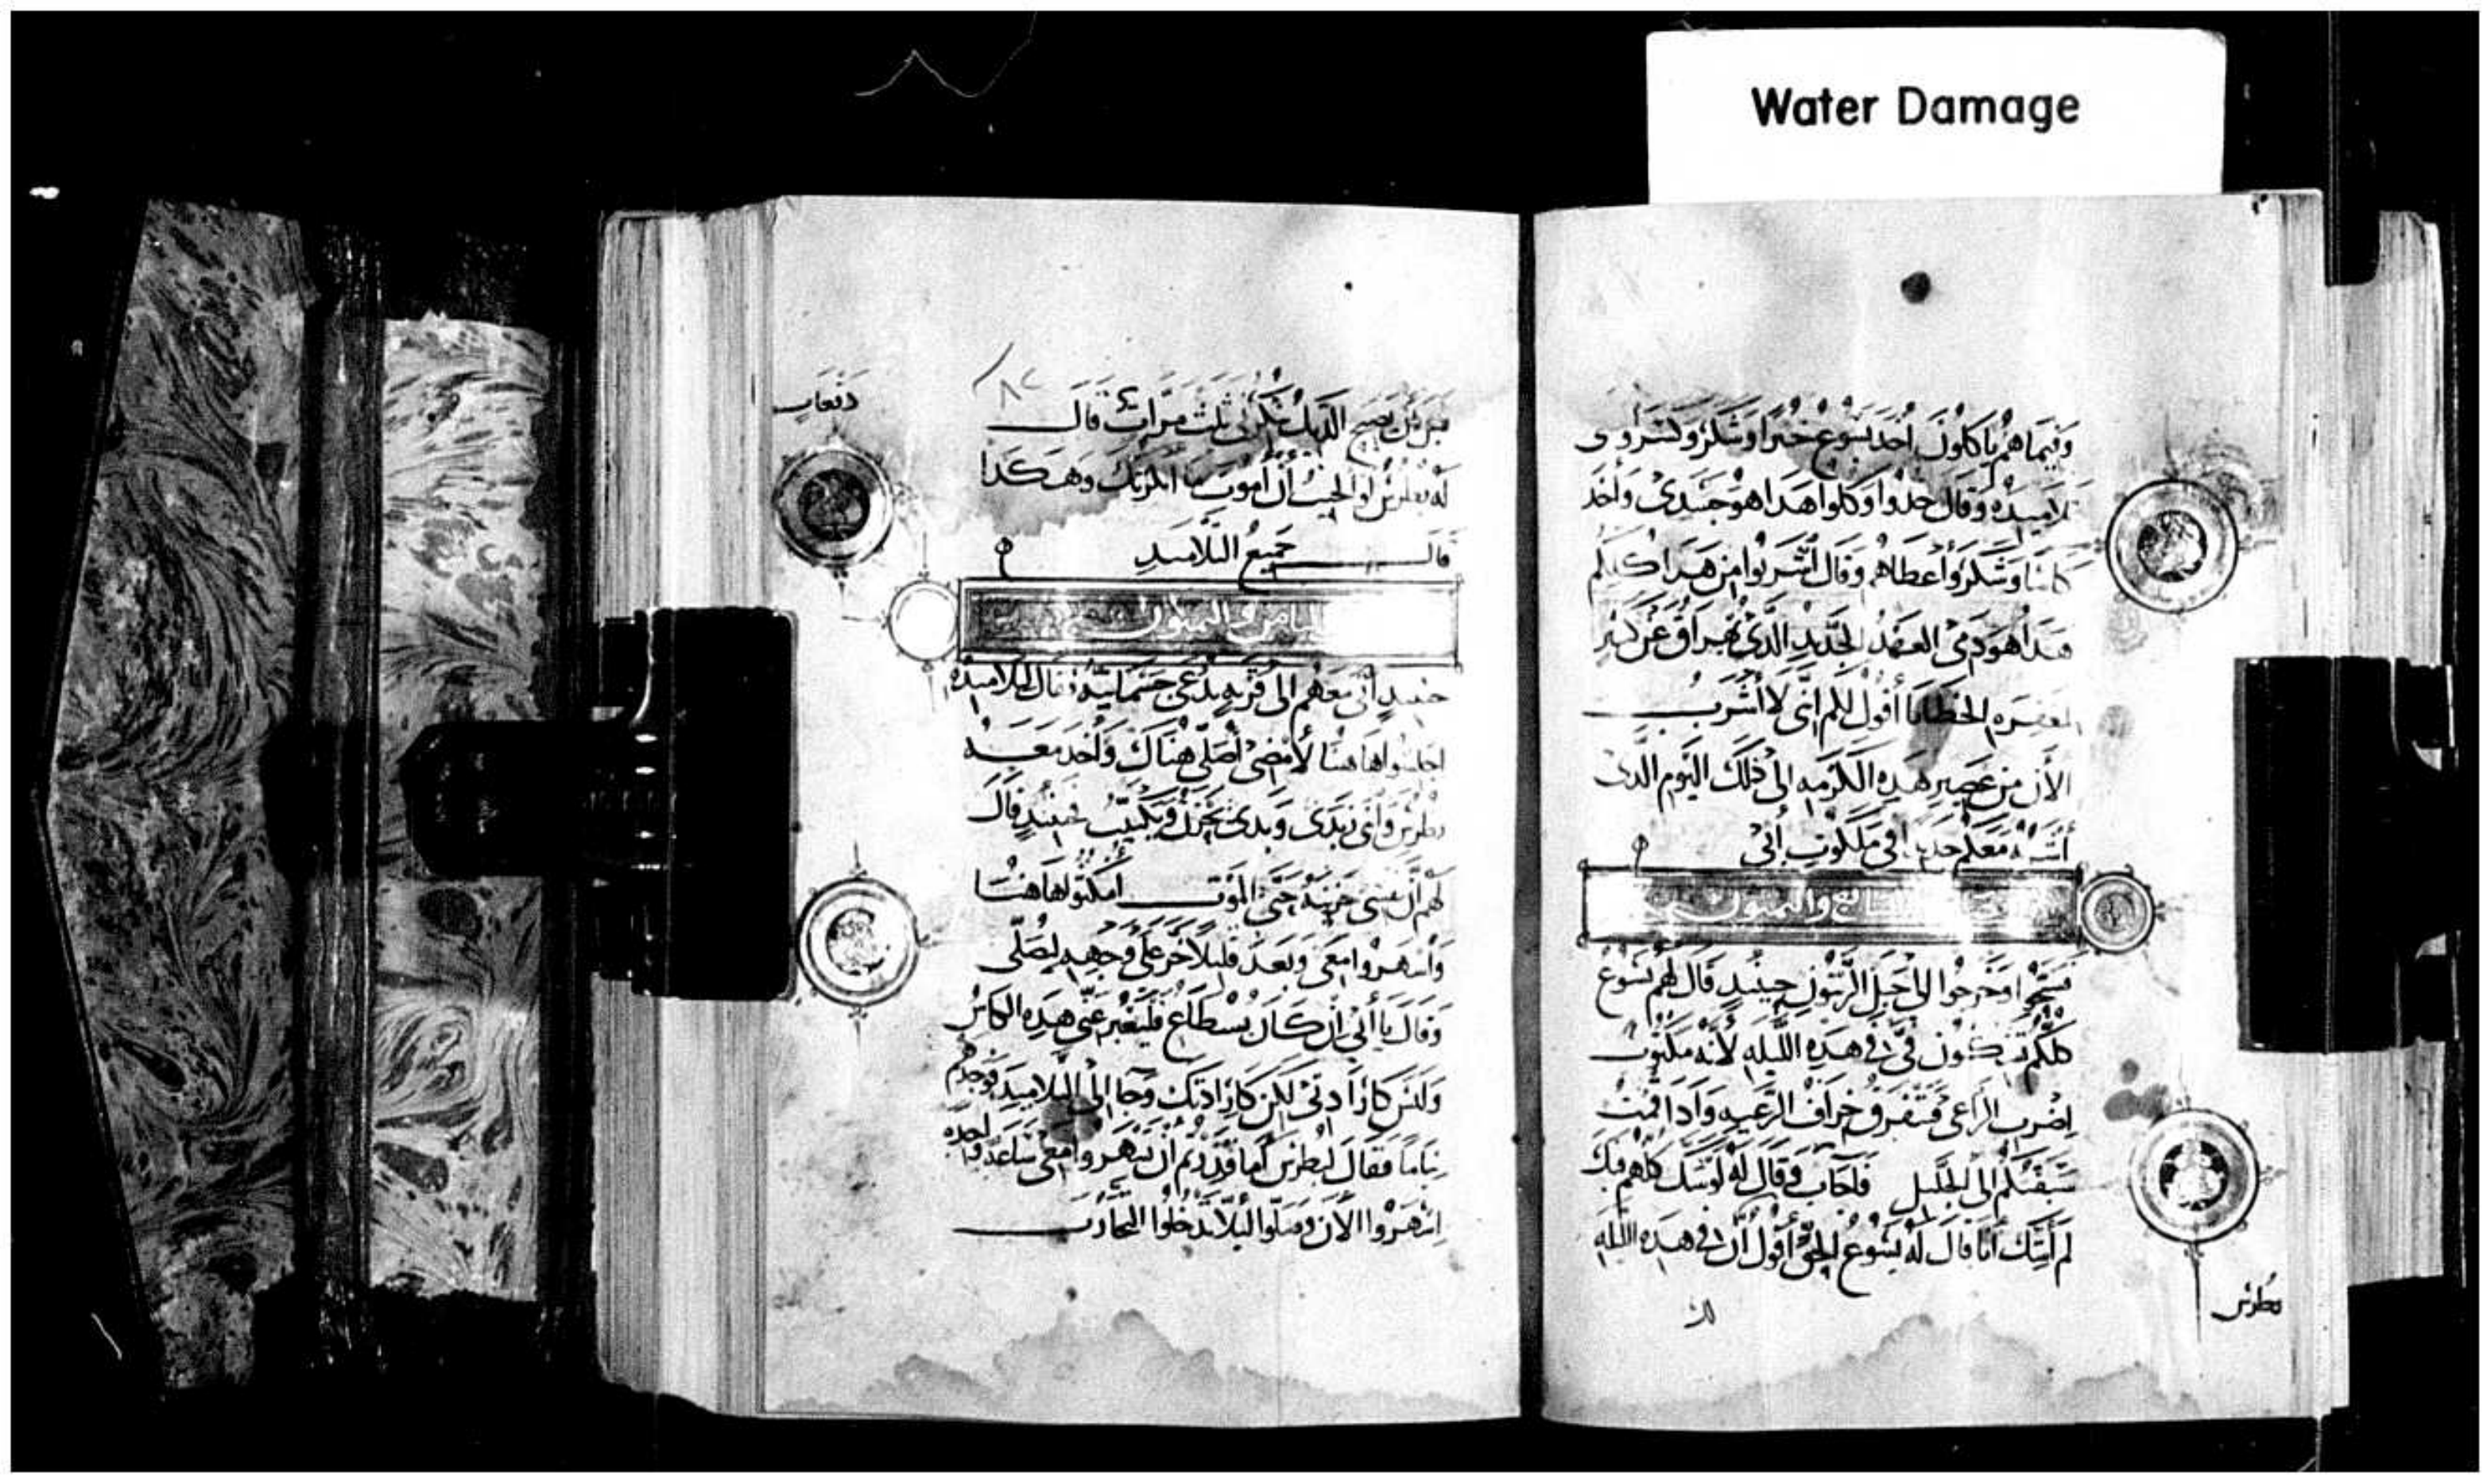 Water Damage
وَفيمَا هم ياكلونَ أخذ يسوع خبزا وشكر وكسر وأعطى
تلاميذه وقال خذوا وكلوا هدا هو جسدى وأخذ
كاسا وشكر وأعطاهم وقال أشربوا من هدا كلكم
هدا هو دمى العهد الجديد الذى يهراق عن كثير
لمغفره الخطايا أقول لكم انى لا أشرب
الأن من عصير هده الكرمه الى ذلك اليوم الدى
أشربه معكم جديدا فى ملكوت أبى
السابع والسبعون
فسبحوا وخرجوا الى جبل الزيتون حينيد قال لهم يسوع
كلكم تشكون فىّ فى هده الليله لأنه مكتوب
اضرب الراعى فتتفرق خراف الرعيه وادا قمت
سبقتكم الى الجليل فاجاب وقال له لو شك كلهم فيك
لم أشك أنا قال له يسوع الحق أقول لك ان فى هده الليله
بطرس
قبل أن يصيح الديك تنكرنى ثلث مرات قال
له بطرس لو الجيت أن أموت ما انكرتك وهكدا
قال جميع التلاميد
دفعات
الثامن والسبعون
حينيد أتى معهم الى قريه تدعى جسمانيه فقال لتلاميده
اجلسوا هاهنا لأمضى أصلى هناك وأخد معه
بطرس وابنى زبدى وبدى يحزن ويكتيب فحينيد قال
لهم ان نفسى حزينه حتى الموت امكثوا هاهنا
وأسهروا معى وبعد قليلا خر على وجهه ليصلى
وقال يا أبى ان كان يستطاع فليعبر عنى هده الكاس
وليس كارادتى لكن كارادتك وجا الى التلاميد فوجدهم
نياما فقال لبطرس أما قدرتم أن تسهروا معى ساعه واحده
اسهروا الأن وصلوا ليلا تدخلوا التجارب